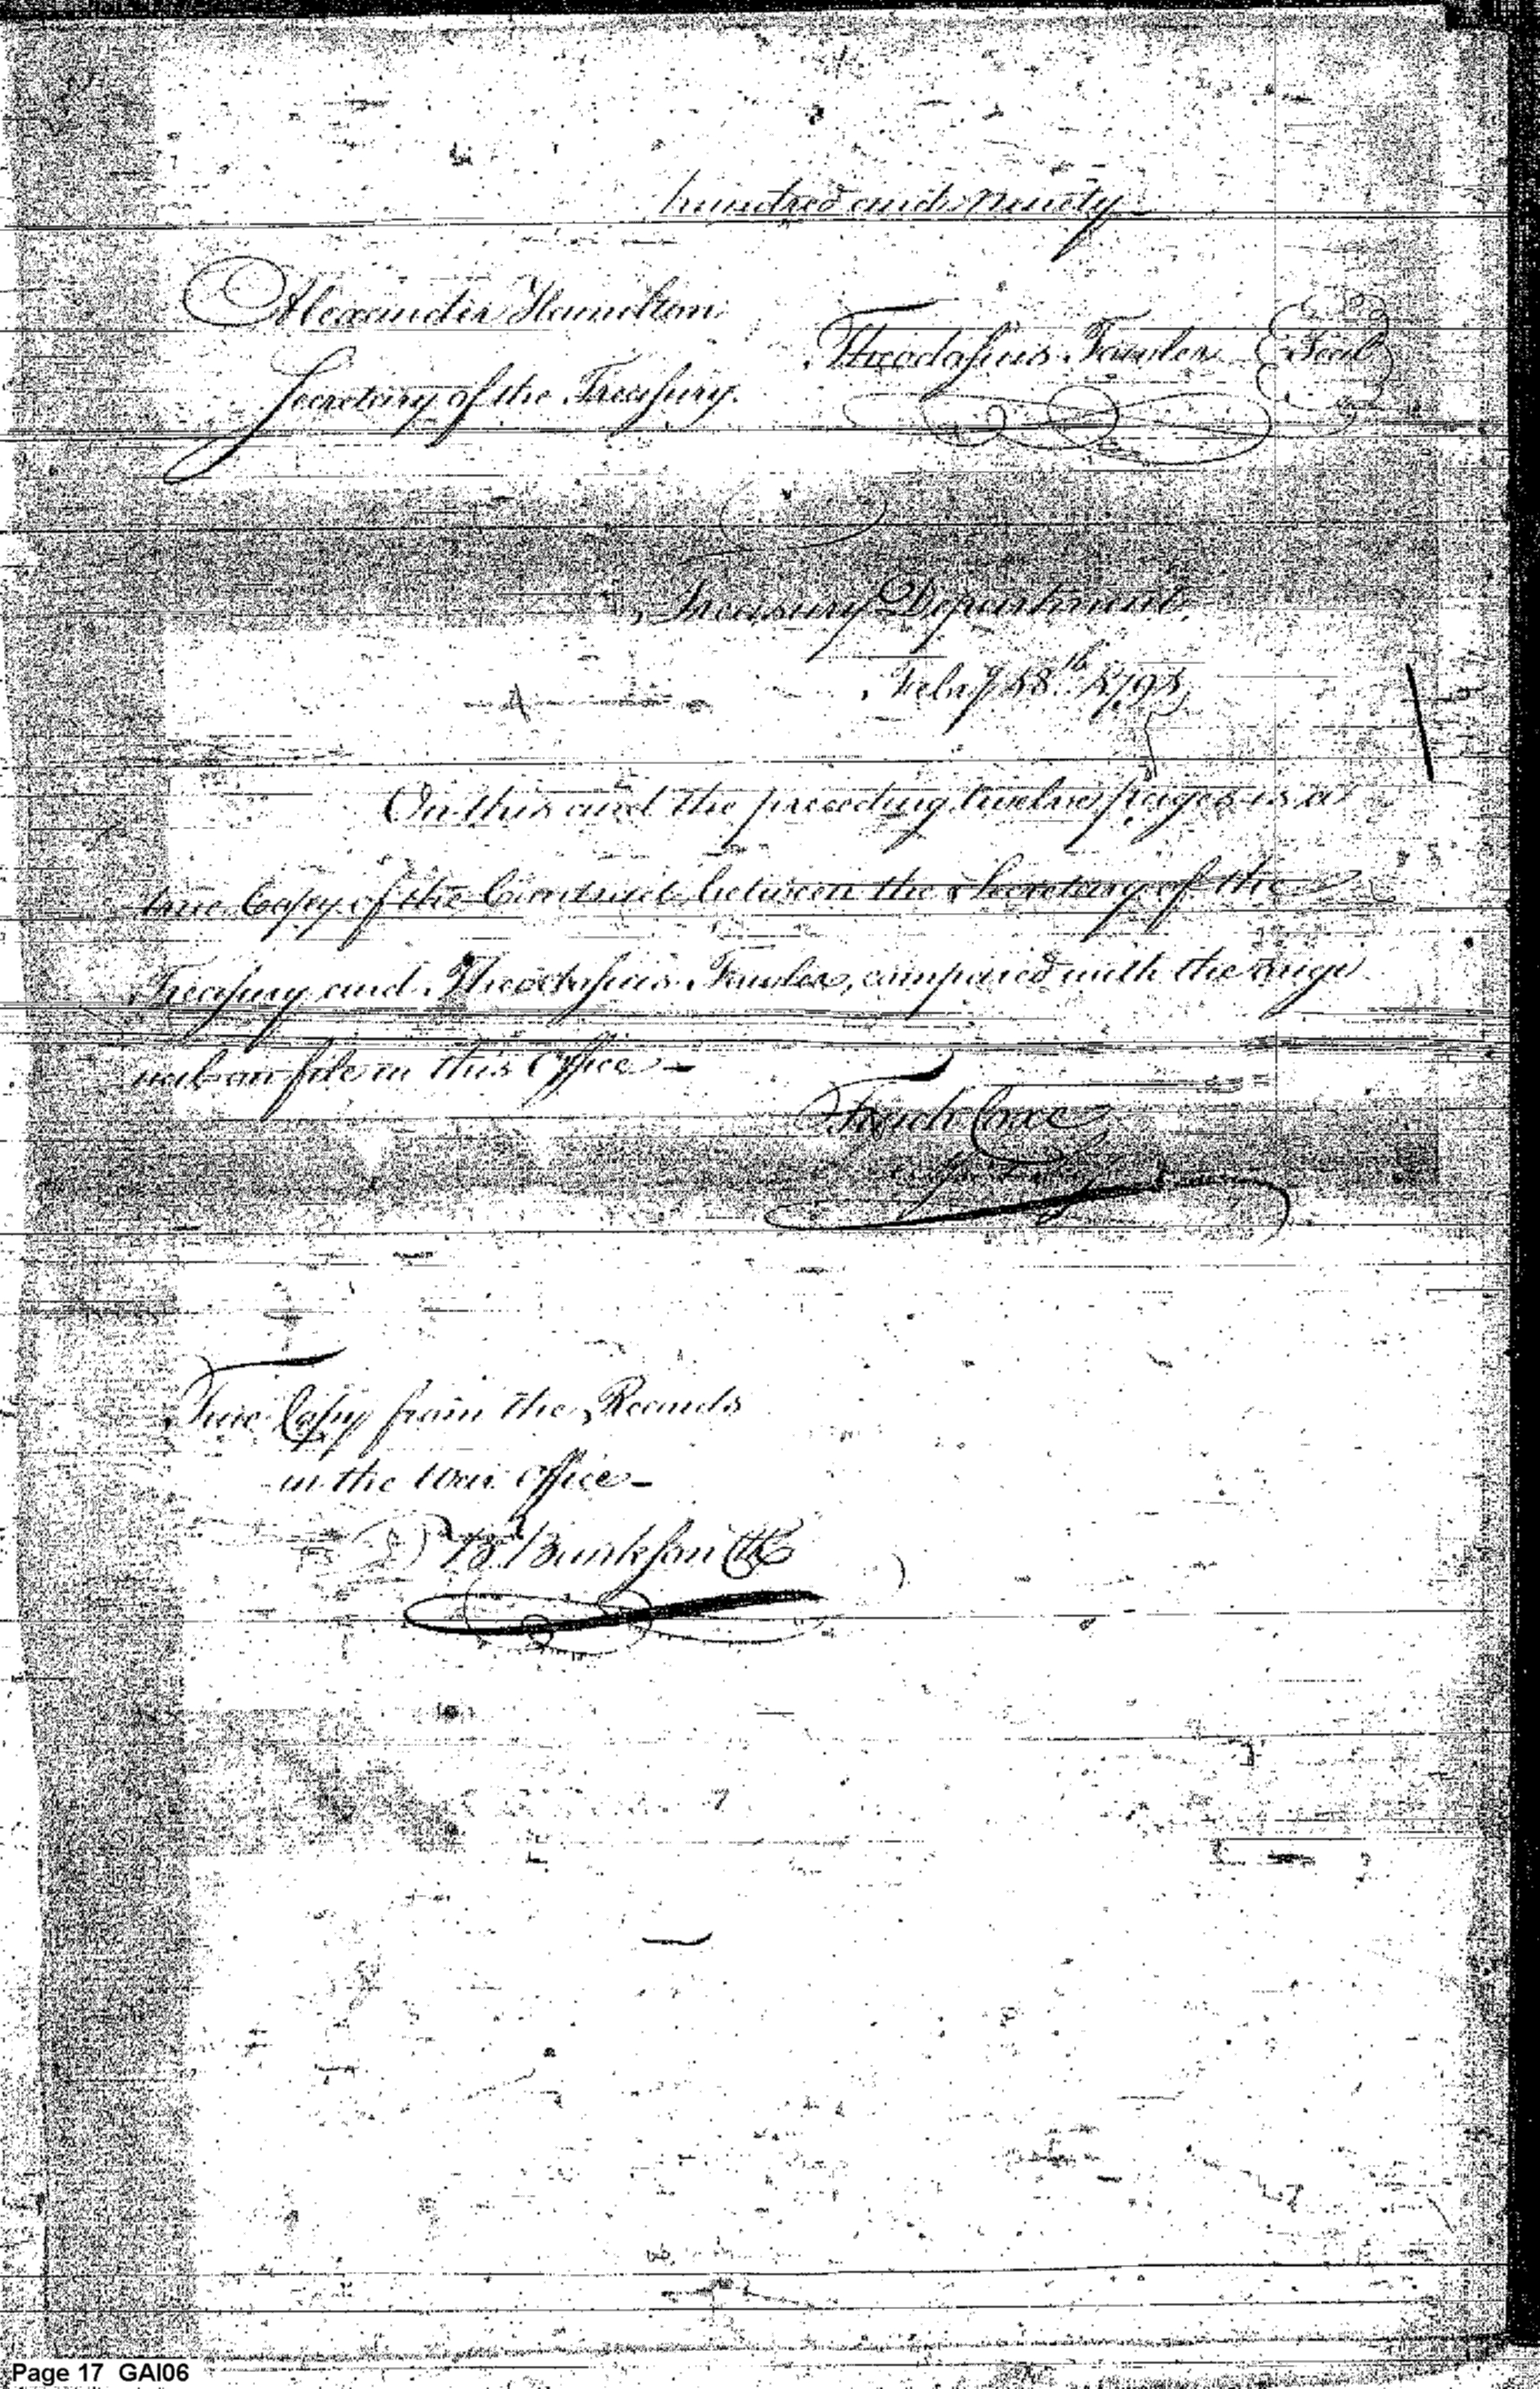 hundred and Ninety
Alexander Hamilton
Theodosius Fowler Seal
Secretary of the Treasury.
Treasury Department
Feby 18th 1791
On this and the preceding twelve pages is a
true Copy of the Contract between the Secretary of the
Treasury and Theodosius Fowler, compared with the origi
nal on file in this Office –
Tench Coxe
True Copy from the Records
in the War Office –
Page 17 GAI06